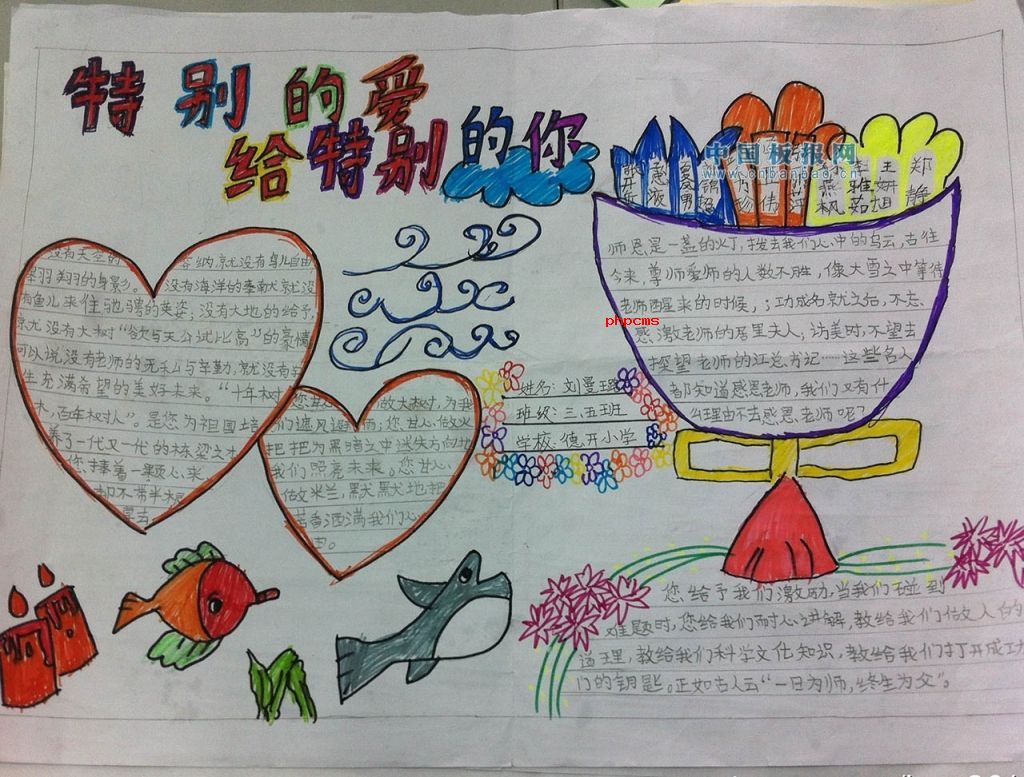 特别的爱
给特别的你
中国板报网
www.cnbanbao.cn
王 郑
雅 妍 静
枫 茹
师恩是一盏的灯,拨去我们心中的乌云,古往
今来,尊师爱师的人数不胜,像大雪之中等待
老师醒来的时候,;功成名就之后,不忘
感激老师的居里夫人,访美时,不望去
探望老师的江总书记……这些名人
都知道感恩老师,我们又有什
么理由不去感恩老师呢?
phpcms
没有天空的
容纳,就没有鸟儿自由
翱翔的身影。没有海洋的
就没
有鱼儿来往驰骋的英姿;没有大地的给予,
就没有大树“欲与天公试比高”的豪情
可以说,没有老师的无私与辛勤,就没有学
生充满希望的美好未来。“十年树
木,百年树人”。是您为祖国培
养了一代又一代的栋梁之才
您捧着一颗心来,
却不带半
草去
您甘
做大树,为我
们遮风避雨;您甘心做火
把 把为黑暗之中迷失方向
我们照亮未来。您甘心
做米兰,默默地把
芳香洒满我们心
。
姓名:刘曼
班级:三.五班
学校:德开小学
您给予我们激励,当我们碰到
难题时,您给我们耐心讲解,教给我们做人的
道理,教给我们科学文化知识,教给我们打开成功
门的钥匙。正如古人云“一日为师,终生为父”。